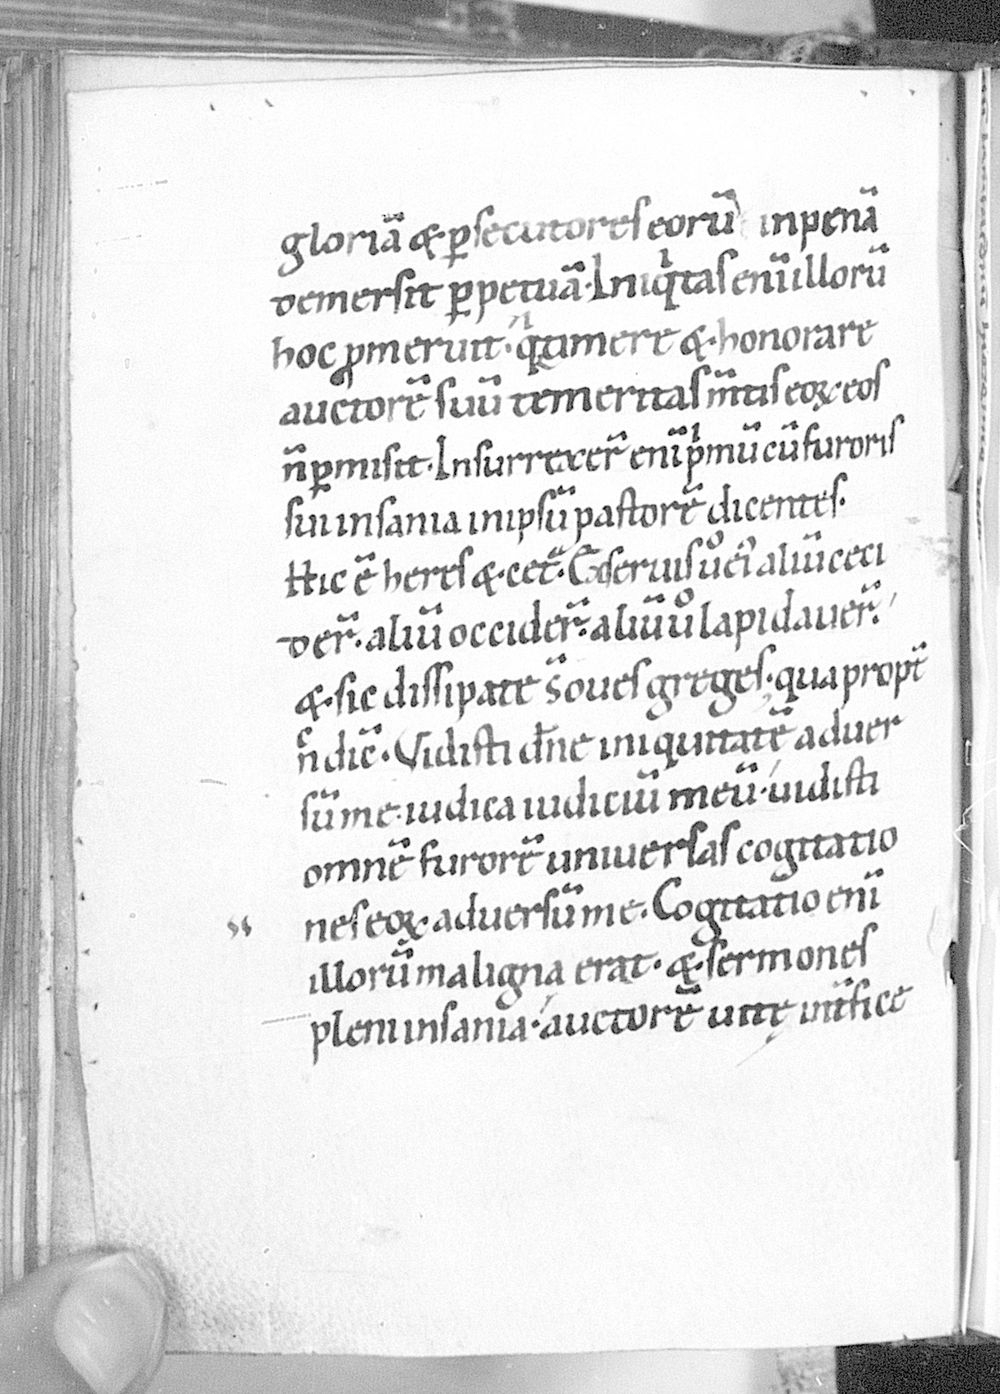 gloriā & ꝑsecutores eorū in penā
demersit ꝑpetuā. Iniqͥtas enī illorū
hoc ꝓmeruit. qͥ timere &. honorare
auctorē suū temeritas m̄tis eoꝝ eos
n̄ ꝑmisit. Insurrexer̄ enī pͥmū cū furoris
sui insania in ipsū pastorē dicentes.
Hic ē heres &. cet̄. E seruis uͦ ei aliū ceci
der̄. aliū occider̄. aliū uͦ lapidauer̄.
&. sic dissipate s̄ oues greges. qua propt̄
n̄ͨ dic̄. Vidisti dn̄e iniquitatē aduer
sū me. iudica iudiciū meū. uidisti
omnē furorē uniuersas cogitatio
nes eoꝝ aduersū me. Cogitatio enī
illorū maligna erat. &. sermones
pleni insania. auctorē uitę int̄fice